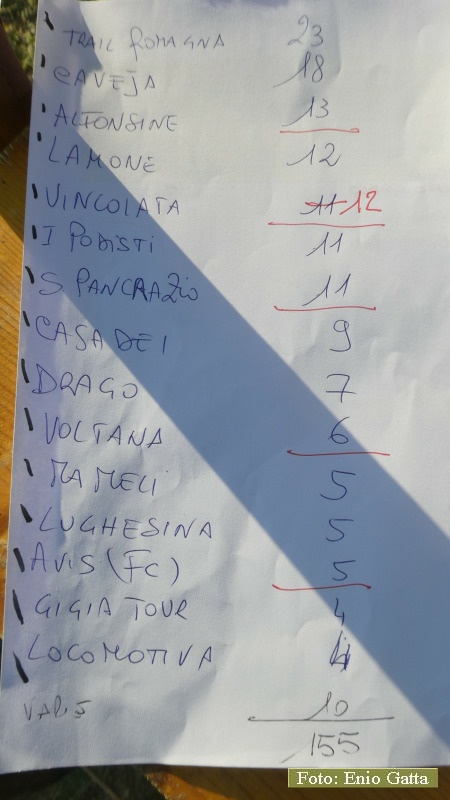 TRAIL ROMAGNA 23
CAVEJA 18
ALFONSINE 13
LAMONE 12
VINCOLATA 11 12
I PODISTI 11
S PANCRAZIO 11
CASADEI 9
DRAGO 7
VOLTANA 6
MAMELI 5
LUGHESINA 5
AVIS (FC) 5
GIGIA TOUR 4
LOCOMOTIVA 4
VARI 5 10
155
Foto: Enio Gatta